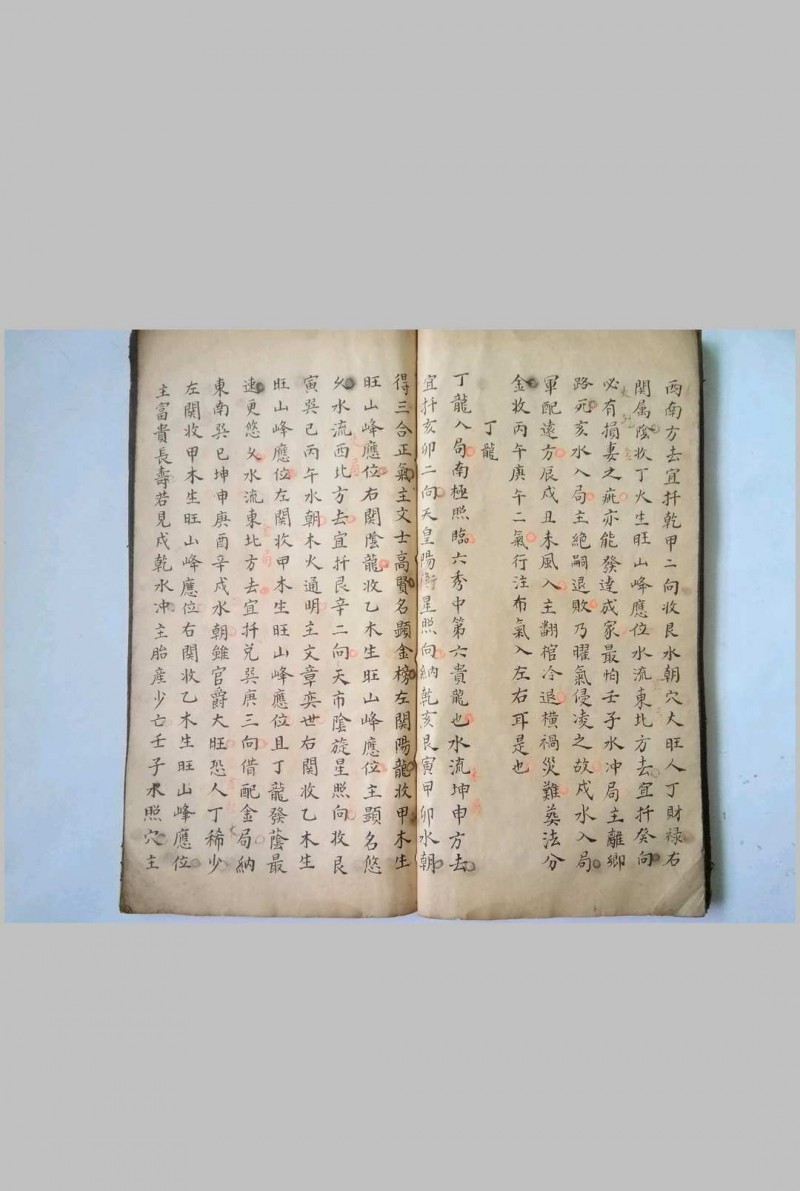 西南方去宜扦乾甲二向收艮水朝穴大旺人丁財祿右
関属陰收丁火生旺山峰應位水流東北方去宜扦癸向
必有損妻之疵亦能發達成家最怕壬子水冲局主離鄉
路死亥水入局主絶嗣退敗乃曜氣侵凌之故戍水入局
軍配遠方辰戍丑未風入主翻棺冷退橫禍災難葬法分
金收丙午庚午二氣行注布氣入左右耳是也
丁龍
丁龍入局南極照臨六秀中第六貴龍也水流坤申方去
宜扦亥卯二向天皇陽衝星照向納乾亥艮寅甲卯水朝
得三合正氣主文士高賢名顯金榜左関陽龍收甲木生
旺山峰應位右関陰龍收乙木生旺山峰應位主顯名悠
久水流西北方去宜扦艮辛二向天市陰旋星照向收艮
寅巽巳丙午水朝木火通明主文章奕世右関收乙木生
旺山峰應位左関收甲木生旺山峰應位且丁龍發蔭最
速更悠久水流東北方去宜扦兑巽庚三向借配金局納
東南巽巳坤申庚酉辛戍水朝雖官爵大旺恐人丁稀少
左関收甲木生旺山峰應位右関收乙木生旺山峰應位
主富貴長壽若見戍乾水冲主胎產少亡壬子水照穴主